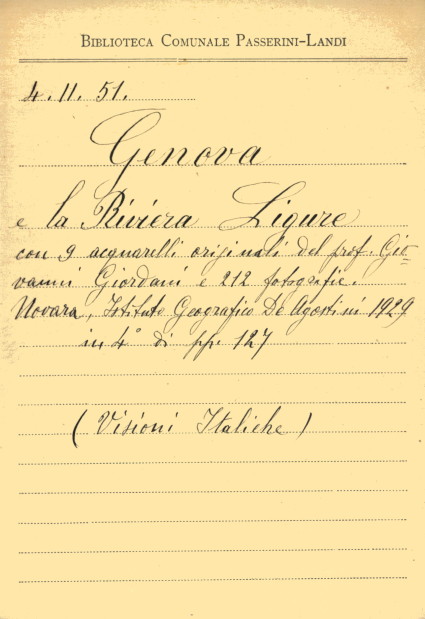 BIBLIOTECA COMUNALE PASSERINI-LANDI
4. 11. 51.
Genova
e la Riviera Ligure
con 9 acquarelli originali del prof. Gio=
vanni Giordani e 212 fotografie.
Novara, Istituto Geografico De Agostini 1929
in 4° di pp. 127
(Visioni Italiche)